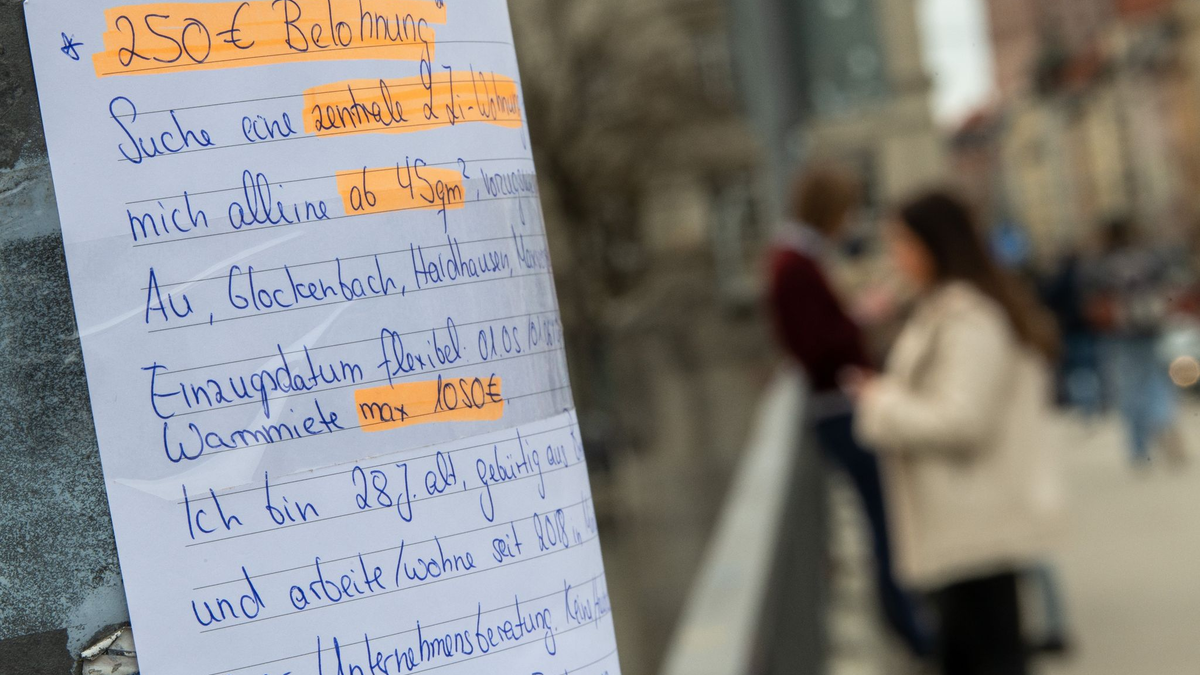 * 250€ Belohnung*
Suche eine zentrale 2 Zi-Wohnung
mich alleine ab 45qm²,
Au, Glockenbach, Haidhausen,
Einzugsdatum flexibel 01.05
Warmmiete max 1050€,
Ich bin 28 J. alt, gebürtig aus
und arbeite/wohne seit 2018 in
Unternehmensberatung.